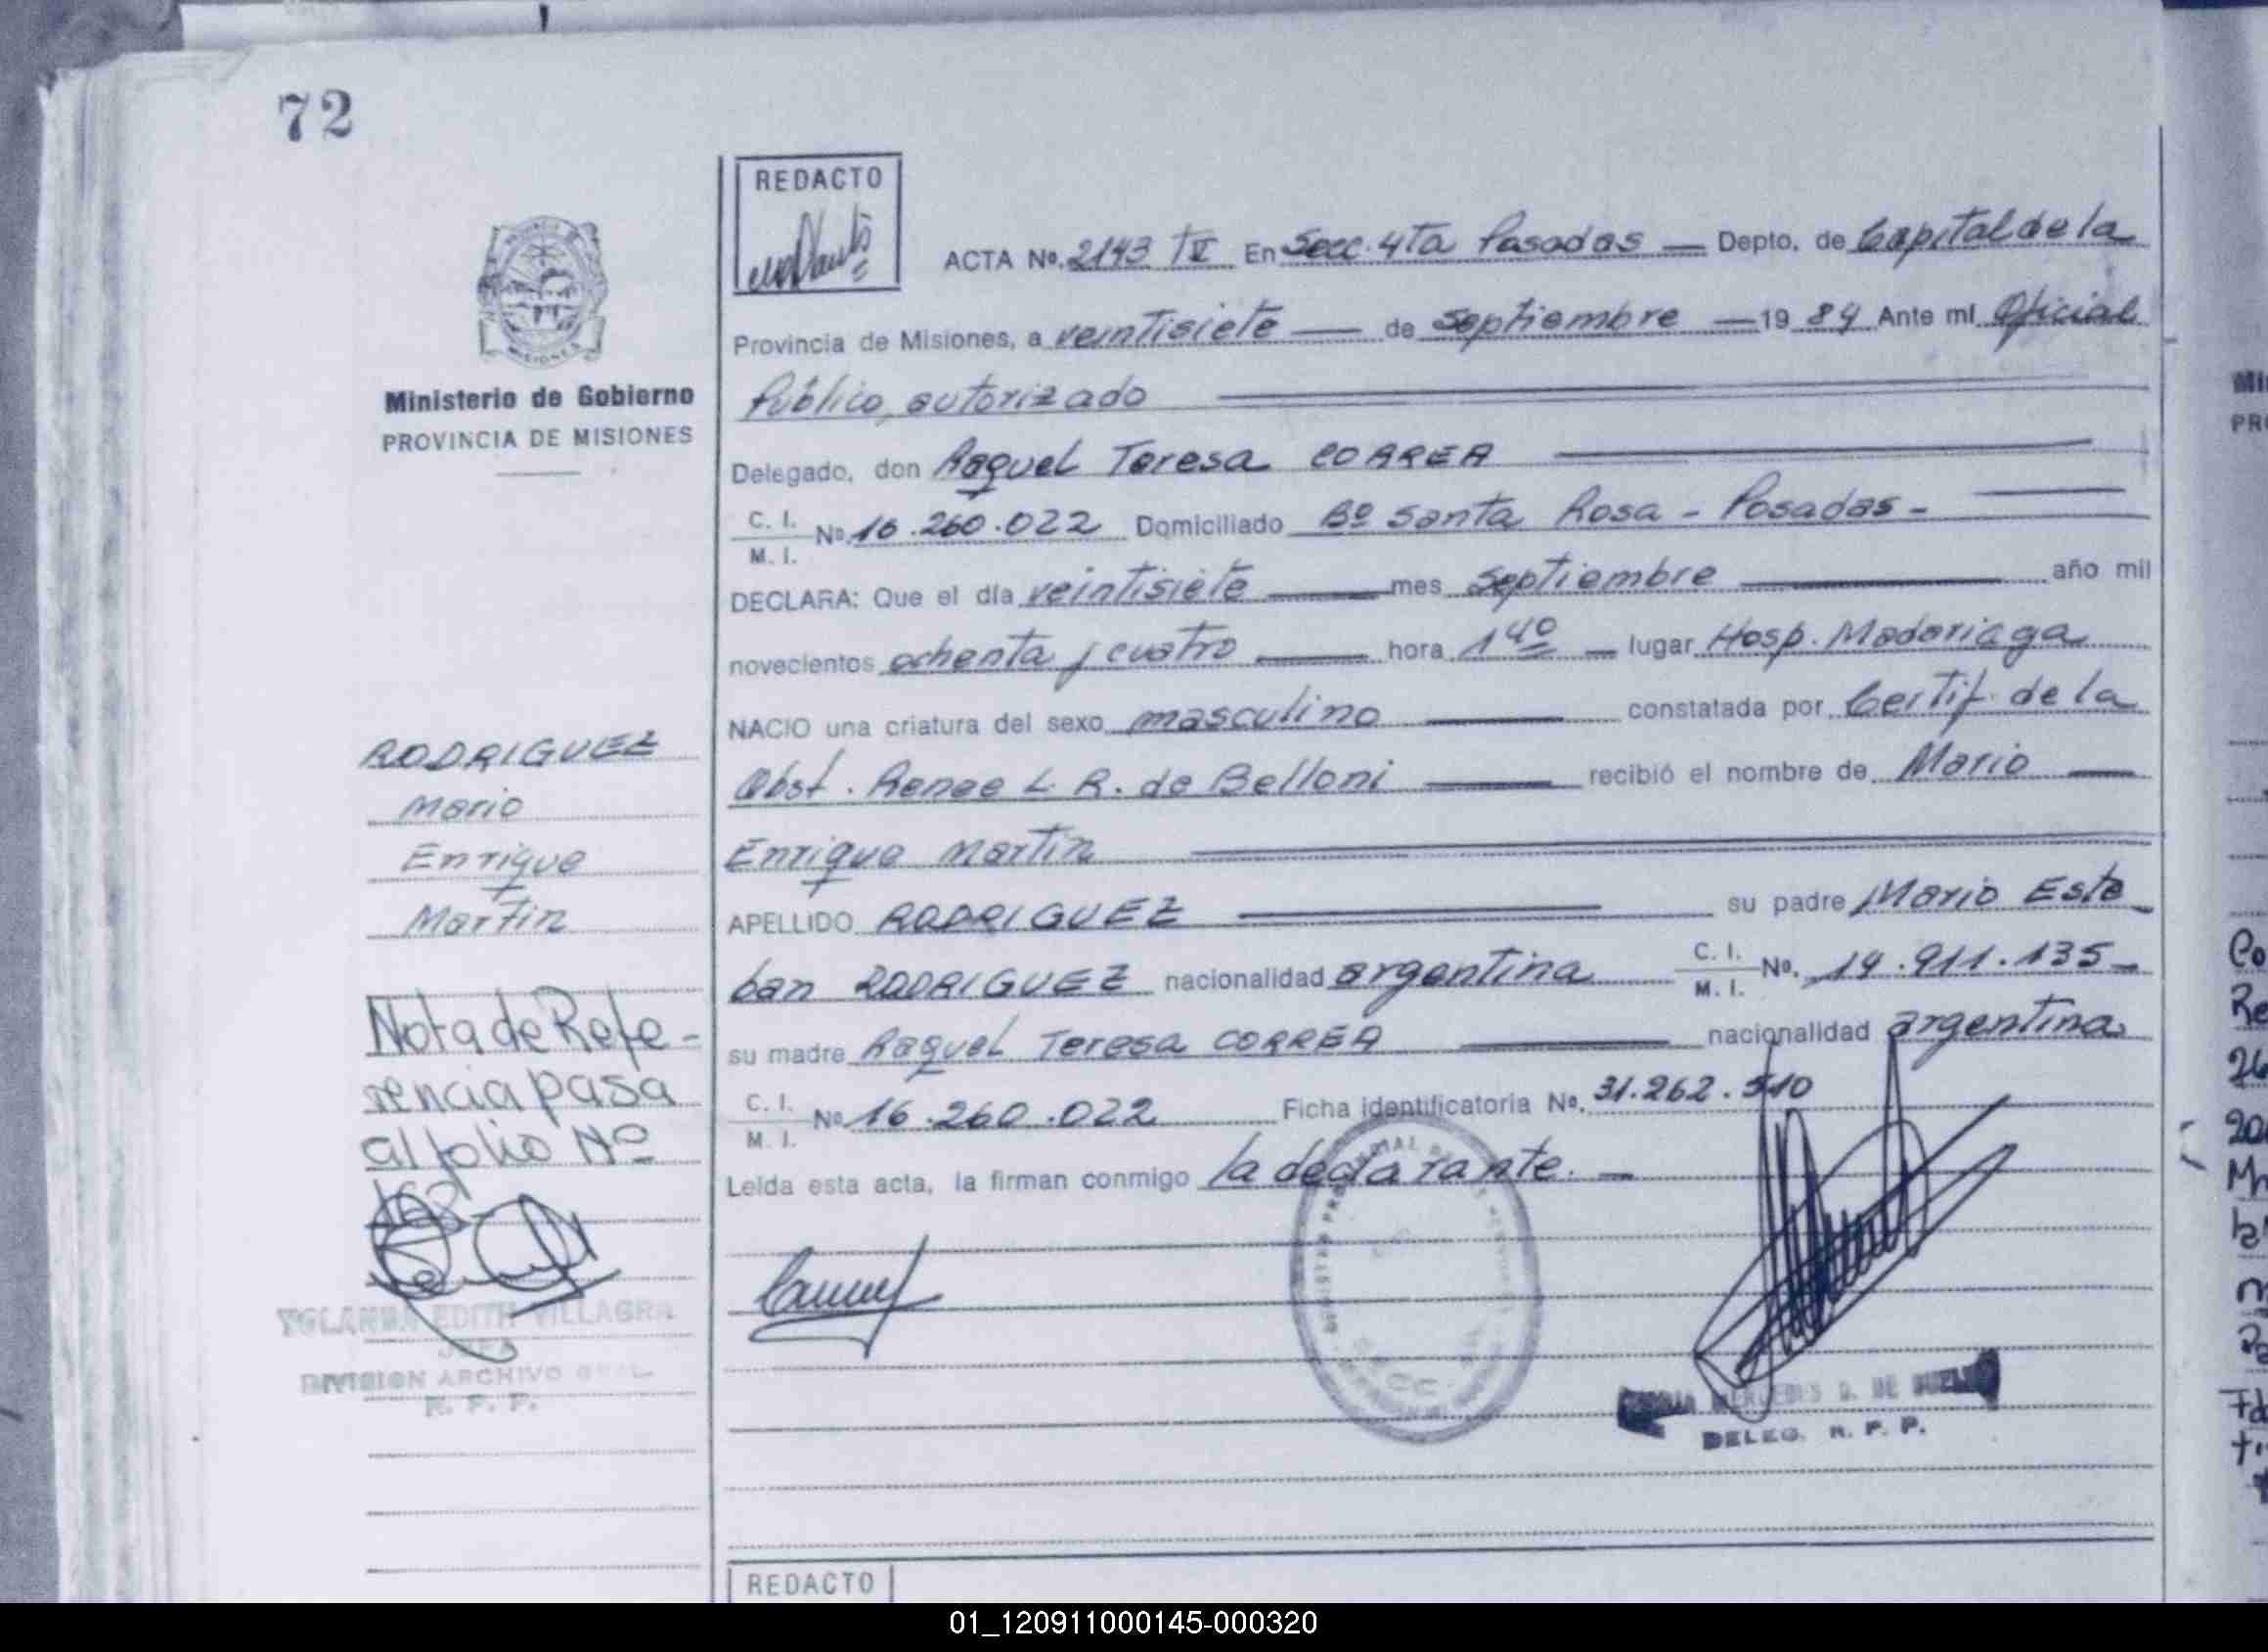 72
REDACTO
ACTA Nº. 2143 TV En Secc. 4ta Posadas — Depto. de Capital de la
Provincia de Misiones, a veintisiete — de septiembre — 19 84 Ante mí Oficial
Público autorizado
Delegado, don Raquel Teresa CORREA
C. I. / M. I. Nº. 16.260.022 Domiciliado Bº Santa Rosa - Posadas -
DECLARA: Que el día veintisiete — mes septiembre — año mil
novecientos ochenta y cuatro — hora 14º — lugar Hosp. Madariaga
NACIO una criatura del sexo masculino — constatada por Certif. de la
Obst. Renee L. R. de Belloni — recibió el nombre de Mario —
Enrique Martin
APELLIDO RODRIGUEZ — su padre Mario Este_
ban RODRIGUEZ nacionalidad argentina C. I. / M. I. Nº. 14.911.135 —
su madre Raquel Teresa CORREA — nacionalidad argentina
C. I. / M. I. Nº 16.260.022 Ficha identificatoria Nº. 31.262.510
Leída esta acta, la firman conmigo la declarante. —
DELEG. R. P. P.
REDACTO
PROVINCIA DE MISIONES
MISIONES
Ministerio de Gobierno
PROVINCIA DE MISIONES
RODRIGUEZ
Mario
Enrique
Martin
Nota de Refe-
rencia pasa
al folio Nº
168
YOLANDA EDITH VILLAGRA
JEFA
DIVISION ARCHIVO GRAL.
R. P. P.
01_120911000145-000320